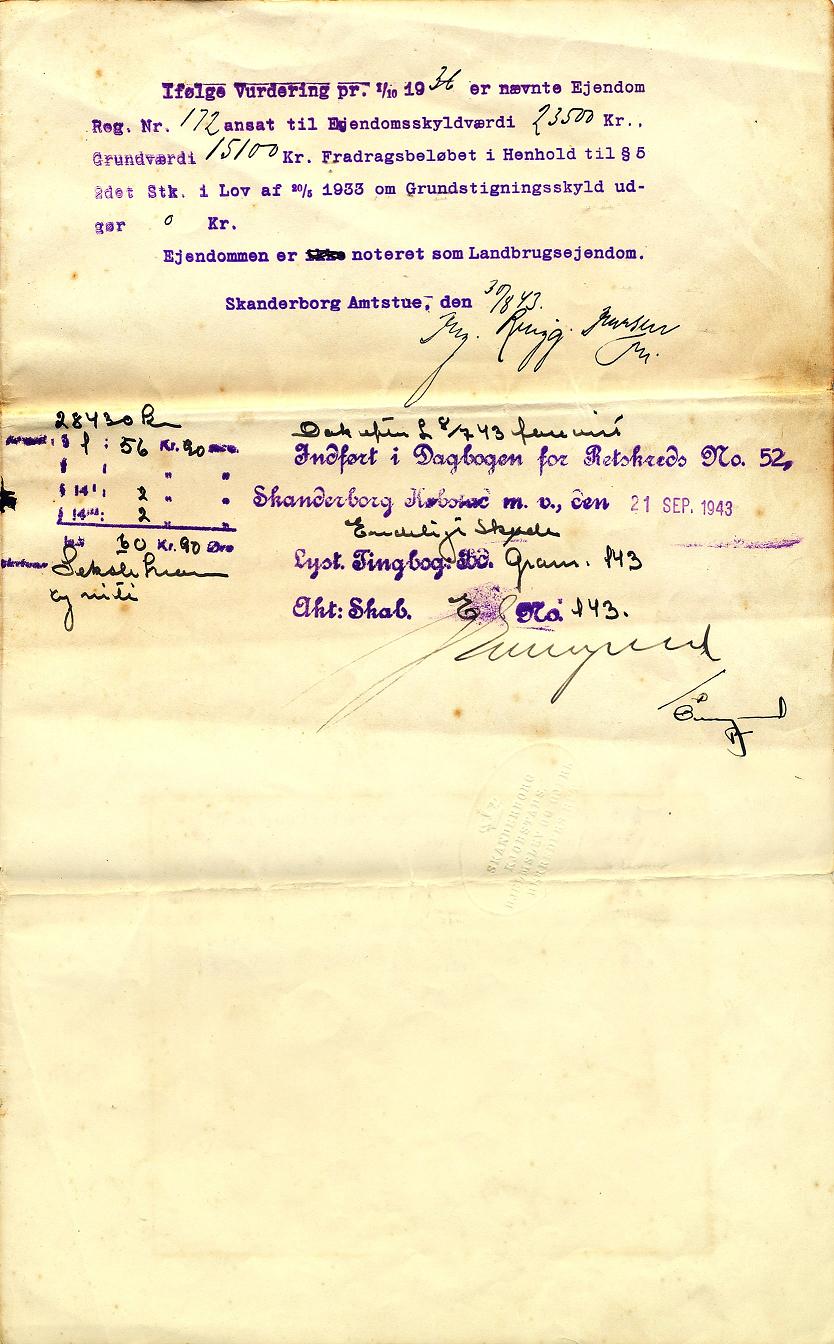 Ifølge Vurdering pr. 1/10 1936 er nævnte Ejendom
Reg. Nr. 172 ansat til Ejendomsskyldværdi 23500 Kr.,
Grundværdi 15100 Kr. Fradragsbeløbet i Henhold til § 5
2det Stk. i Lov af 20/5 1933 om Grundstigningsskyld ud-
gør 0 Kr.
Ejendommen er ikke noteret som Landbrugsejendom.
Skanderborg Amtstue, den 30/8 43.
28430 Kr
§ 1 : 56 Kr. 90 Øre
§ 14 : 2 " "
§ 14 : 2 " "
60 Kr. 90 Øre
og niti
8/7 43 forevist
Indført i Dagbogen for Retskreds No. 52,
Skanderborg Købstad m. v., den 21 SEP. 1943
Endeligt Skøde
Lyst. Tingbog: Bd. Gram. 143
Akt: Skab. E No. 143.
SKANDERBORG
KJØBSTADS